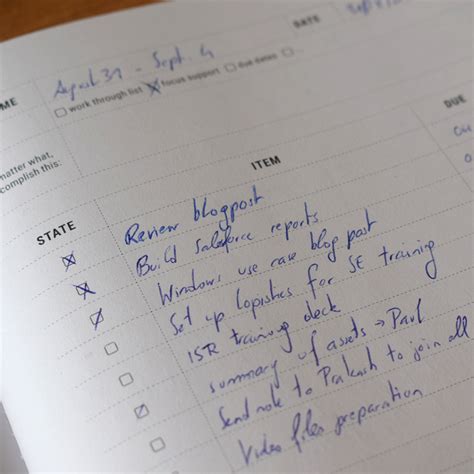 DATE
ME
August 31 - Sept. 4
work through list focus support due dates
matter what,
complish this:
DUE
ITEM
STATE
Review blogpost
Build Salesforce reports
Windows use case blog post
Set up logistics for SE training
ISR training deck
summary of assets → Paul
Send note to Prakash to join all
Video files preparation